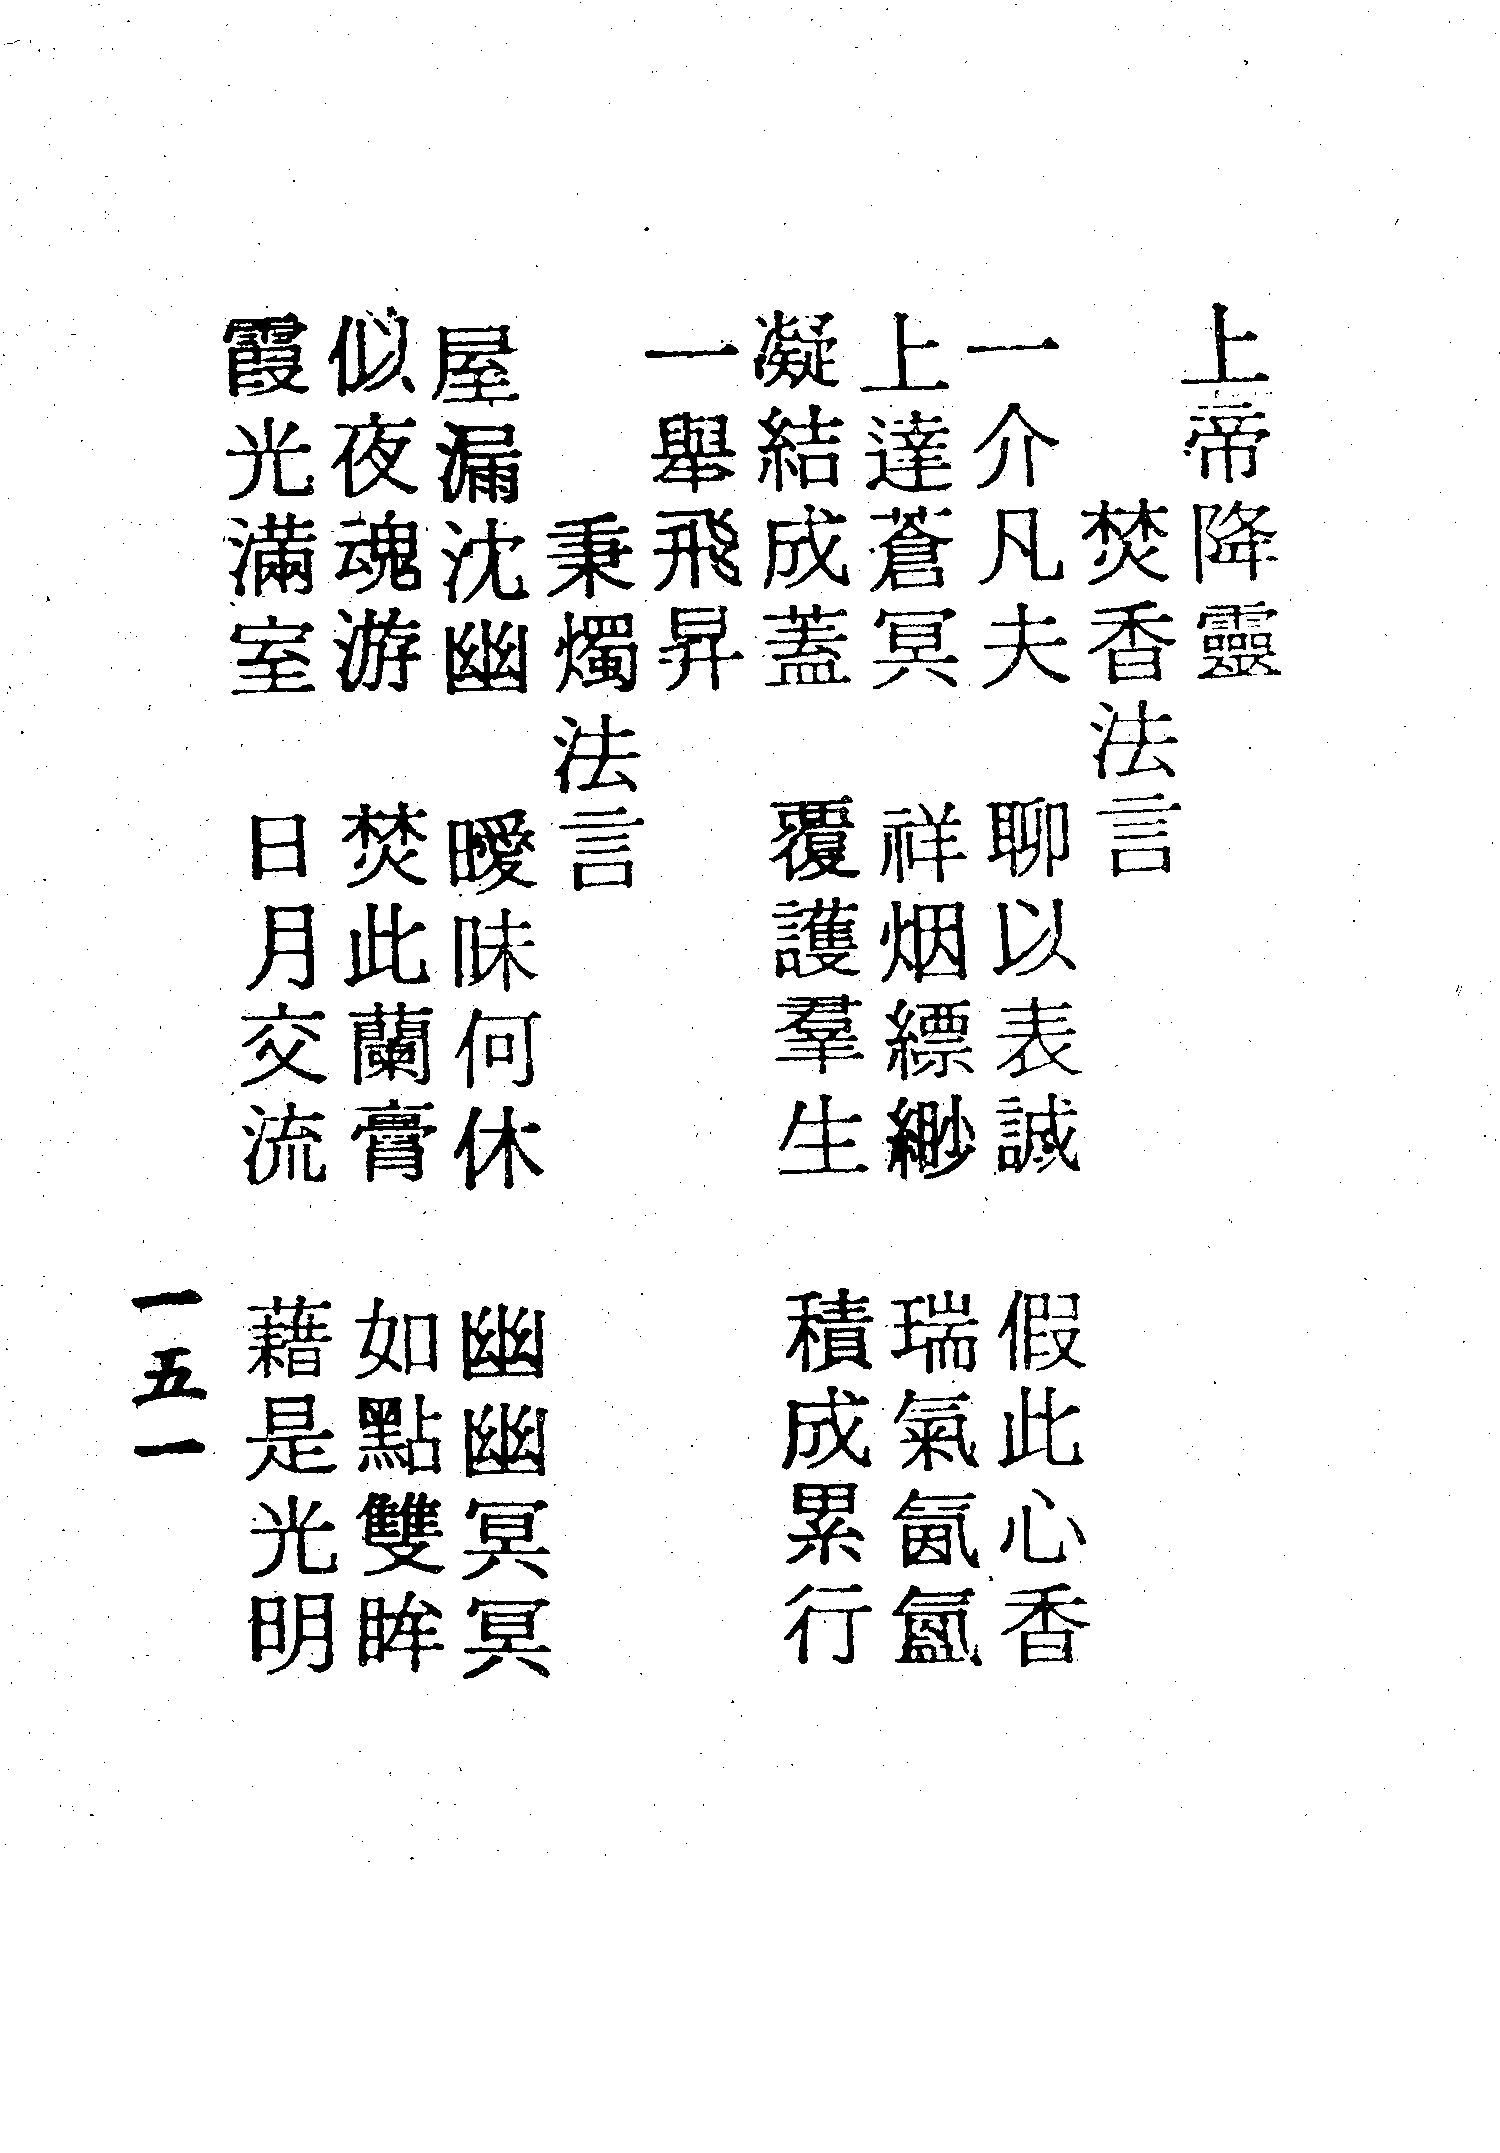 上帝降靈
焚香法言
一介凡夫 聊以表誠 假此心香
上達蒼冥 祥烟縹緲 瑞氣氤氳
凝結成蓋 覆護羣生 積成累行
一舉飛昇
秉燭法言
屋漏沈幽 曖昧何休 幽幽冥冥
似夜魂游 焚此蘭膏 如點雙眸
霞光滿室 日月交流 藉是光明
一五一